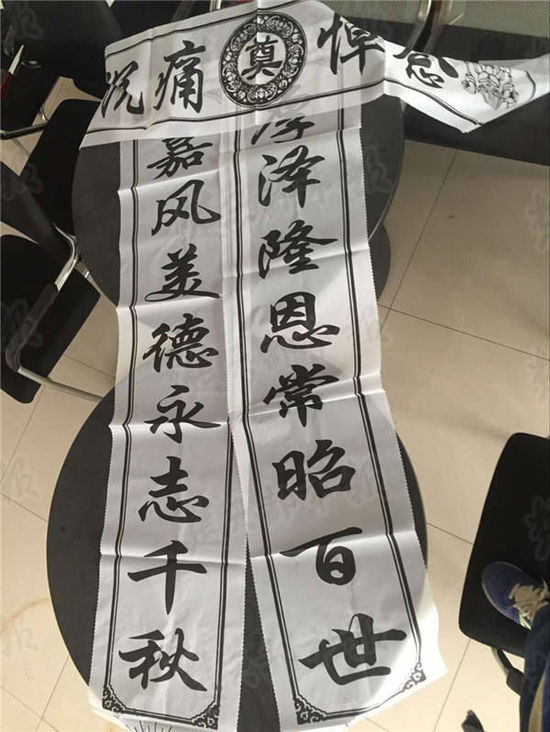 沉痛奠悼念
厚泽隆恩常昭百世
嘉风美德永志千秋